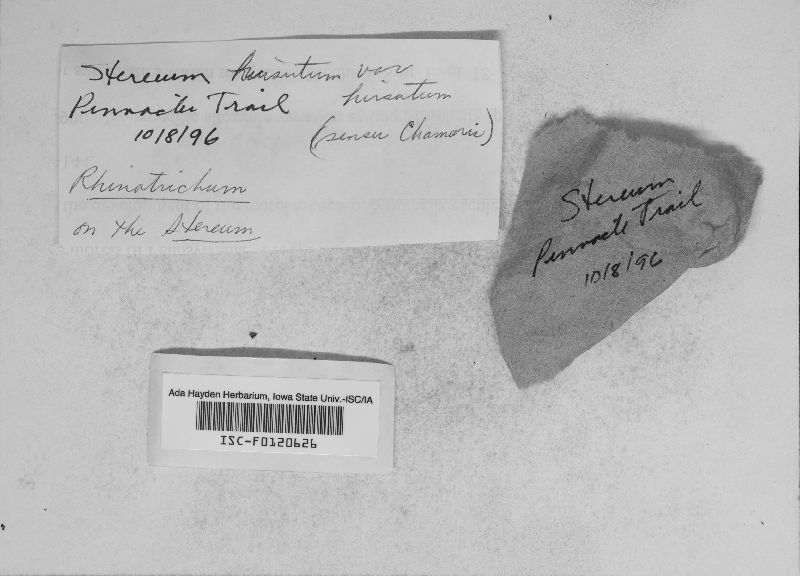 Stereum hirsutum var
hirsutum
Pinnacle Trail
10/8/96
(sensu Chamuris)
Rhinotrichum
on the Stereum
Stereum
Pinnacle Trail
10/8/96
Ada Hayden Herbarium, Iowa State Univ.-ISC/IA
ISC-F0120626